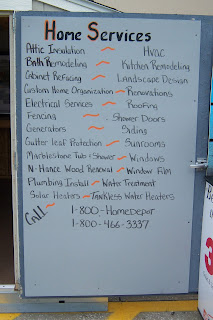 Home Services
Attic Insulation ~ Hvac
Bath Remodeling ~ Kitchen Remodeling
Cabinet Refacing ~ Landscape Design
Custom Home Organization ~ Renovations
Electrical Services ~ Roofing
Fencing ~ Shower Doors
Generators ~ Siding
Gutter leaf Protection ~ Sunrooms
Marblestone Tub & Shower ~ Windows
N-Hance Wood Renewal ~ Window Film
Plumbing Install ~ Water Treatment
Solar Heaters ~ Tankless Water Heaters
Call ~ 1-800-HomeDepot
1-800-466-3337